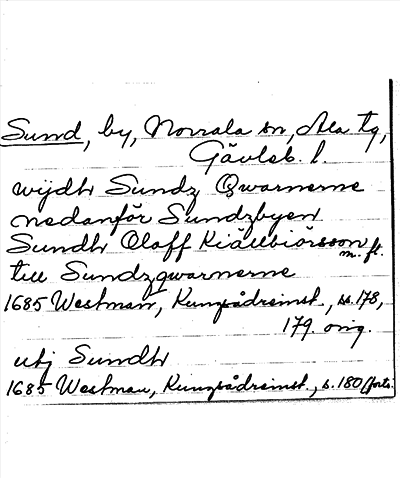 Sund, by, Norrala sn, Ala tg,
Gävleb. l.
wijdh Sundz Qwarnerne
nedanför Sundzbyen
Sundh Oloff Kiällbiörsson m. fl.
till Sundzqwarnerne
1685 Westman, Kungsådreinst., ss. 178,
179. orig.
utj Sundh
1685 Westman, Kungsådreinst., s. 180 (forts.